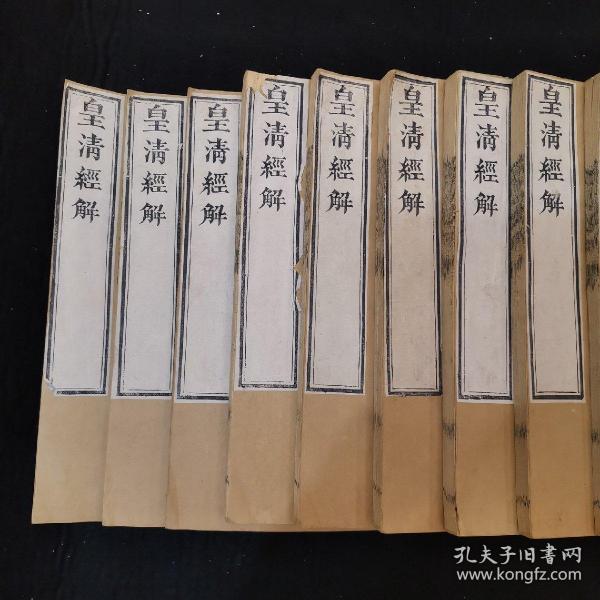 皇清經解
皇清經解
皇清經解
皇清經解
皇清經解
皇清經解
皇清經解
皇清經解
孔夫子旧書网
www.kongfz.com